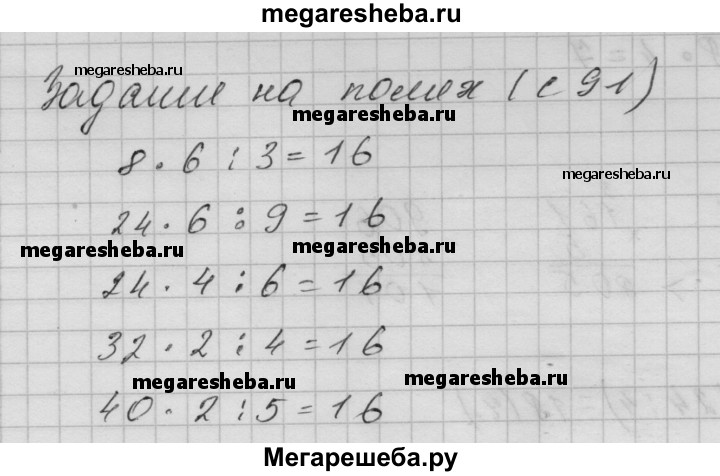 megaresheba.ru
megaresheba.ru
Задание на полях (с 91)
megaresheba.ru
8 · 6 : 3 = 16
megaresheba.ru
24 · 6 : 9 = 16
megaresheba.ru megaresheba.ru
24 · 4 : 6 = 16
32 · 2 : 4 = 16
megaresheba.ru megaresheba.ru
40 · 2 : 5 = 16
Мегарешеба.ру